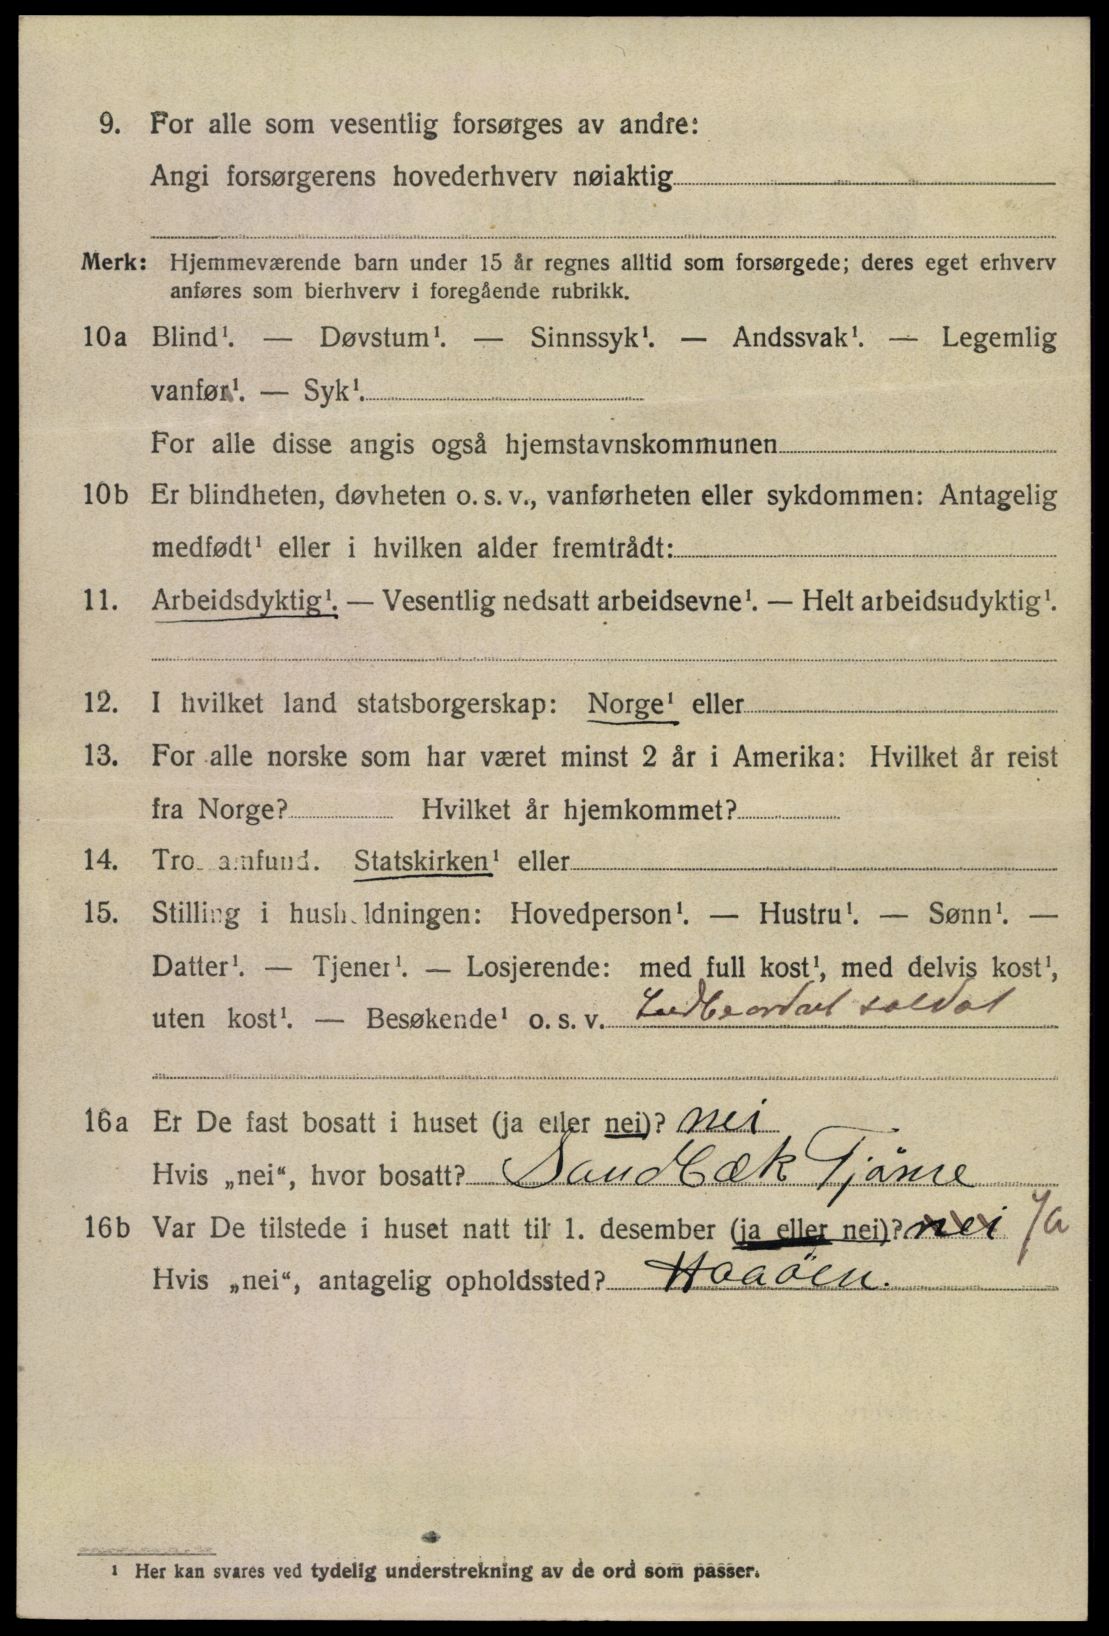 9. For alle som vesentlig forsørges av andre:
Angi forsørgerens hovederhverv nøiaktig
Merk: Hjemmeværende barn under 15 år regnes alltid som forsørgede; deres eget erhverv
anføres som bierhverv i foregående rubrikk.
10a Blind¹. — Døvstum¹. — Sinnssyk¹. — Andssvak¹. — Legemlig
vanfør¹. — Syk¹.
For alle disse angis også hjemstavnskommunen
10b Er blindheten, døvheten o. s. v., vanførheten eller sykdommen: Antagelig
medfødt¹ eller i hvilken alder fremtrådt:
11. Arbeidsdyktig¹. — Vesentlig nedsatt arbeidsevne¹. — Helt arbeidsudyktig¹.
12. I hvilket land statsborgerskap: Norge¹ eller
13. For alle norske som har været minst 2 år i Amerika: Hvilket år reist
fra Norge? Hvilket år hjemkommet?
14. Trossamfund. Statskirken¹ eller
15. Stilling i husholdningen: Hovedperson¹. — Hustru¹. — Sønn¹. —
Datter¹. — Tjener¹. — Losjerende: med full kost¹, med delvis kost¹,
uten kost¹. — Besøkende¹ o. s. v. soldat
16a Er De fast bosatt i huset (ja eller nei)? nei
Hvis „nei“, hvor bosatt? Sandbæk Tjöme
16b Var De tilstede i huset natt til 1. desember (ja eller nei)? nei ja
Hvis „nei“, antagelig opholdssted? Haaöen.
¹ Her kan svares ved tydelig understrekning av de ord som passer.